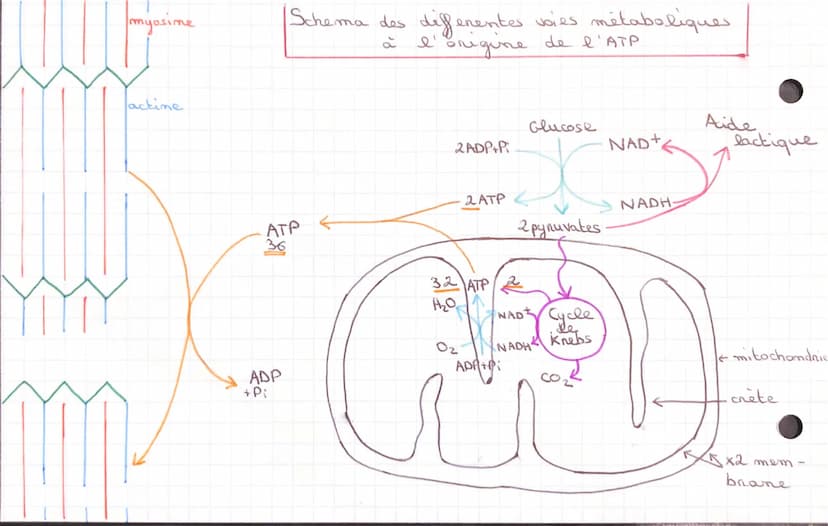 myosine
Schema des differentes voies métaboliques
à l'origine de l'ATP
actine
Glucose
Aide
lactique
2ADP+Pi
NAD+
2ATP
NADH
2 pyruvates
ATP
36
32 ATP 2
H2O
NAD+
Cycle
de
Krebs
O2
NADH
ADP+Pi
CO2
ADP
+Pi
mitochondrie
crête
x2 mem-
brane